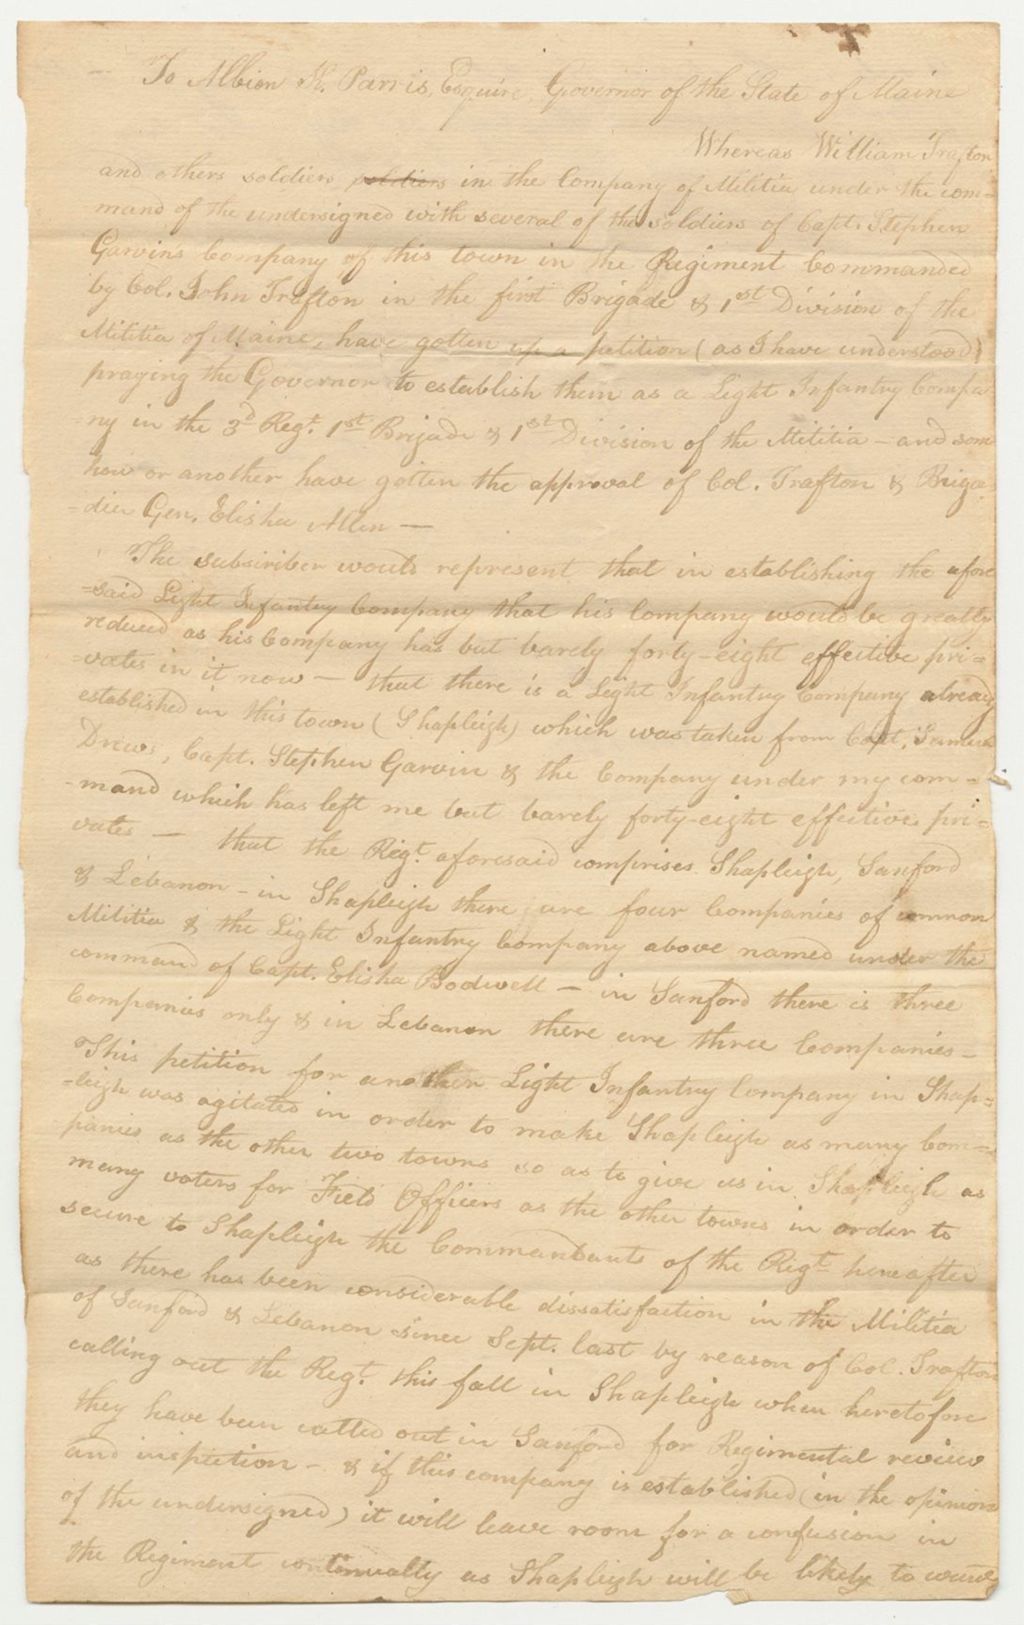 To Albion K. Parris, Esquire, Governor of the State of Maine
Whereas William Trafton
and others soldiers soldiers in the Company of Militia under the com-
mand of the undersigned with several of the soldiers of Capt. Stephen
Garvins Company of this town in the Regiment Commanded
by Col. John Trafton in the first Brigade & 1st Division of the
Militia of Maine, have gotten up a petition (as I have understood)
praying the Governor to establish them as a Light Infantry Compa
-ny in the 3d Regt. 1st Brigade & 1st Division of the Militia - and some
how or another have gotten the approval of Col. Trafton & Briga
-dier Gen. Elisha Allen —
The subscriber would represent, that in establishing the afore
-said Light Infantry Company that his Company would be greatly
reduced as his Company has but barely forty-eight effective pri=
-vates in it now — that there is a Light Infantry Company already
established in this town (Shapleigh) which was taken from Capt. Samuel
Drews, Capt. Stephen Garvin & the Company under my com-
-mand which has left me but barely forty-eight effective pri-
vates — that the Regt. aforesaid comprises Shapleigh, Sanford
& Lebanon - in Shapleigh there are four Companies of common
Militia & the Light Infantry Company above named under the
command of Capt. Elisha Bodwell — in Sanford there is three
Companies only & in Lebanon there are three Companies -
This petition for another Light Infantry Company in Shap-
-leigh was agitated in order to make Shapleigh as many Com-
panies as the other two towns so as to give us in Shapleigh as
many voters for Field Officers as the other towns in order to
secure to Shapleigh the Commandants of the Regt. hereafter
as there has been considerable dissatisfaction in the Militia
of Sanford & Lebanon since Sept. last by reason of Col. Trafton
calling out the Regt. this fall in Shapleigh when heretofore
they have been called out in Sanford for Regimental review
and inspection - & if this company is established (in the opinion
of the undersigned) it will leave room for a confusion in
the Regiment continually as Shapleigh will be likely to